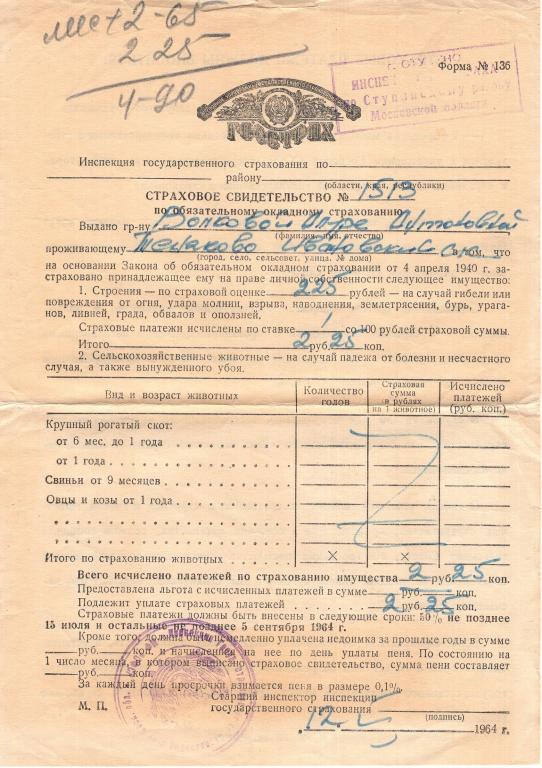 2-65
2 25
4-90
Форма № 136
ИНСПЕ
по Ступинскому району
Московской области
ГОССТРАХ
Инспекция государственного страхования по
району
(области, края, республики)
СТРАХОВОЕ СВИДЕТЕЛЬСТВО № 1513
по обязательному окладному страхованию
Выдано гр-ну Волковой
(фамилия, имя, отчество)
проживающему в том, что
(город, село, сельсовет, улица, № дома)
на основании Закона об обязательном окладном страховании от 4 апреля 1940 г. за-
страховано принадлежащее ему на праве личной собственности следующее имущество:
1. Строения — по страховой оценке 225 рублей — на случай гибели или
повреждения от огня, удара молнии, взрыва, наводнения, землетрясения, бурь, урага-
нов, ливней, града, обвалов и оползней.
Страховые платежи исчислены по ставке 1 со 100 рублей страховой суммы.
Итого 2 руб. 25 коп.
2. Сельскохозяйственные животные — на случай падежа от болезни и несчастного
случая, а также вынужденного убоя.
Вид и возраст животных Количество голов Страховая сумма (в рублях на 1 животное) Исчислено платежей (руб. коп.)
Крупный рогатый скот:
от 6 мес. до 1 года
от 1 года
Свиньи от 9 месяцев
Овцы и козы от 1 года
Итого по страхованию животных × ×
Всего исчислено платежей по страхованию имущества 2 руб. 25 коп.
Предоставлена льгота с исчисленных платежей в сумме руб. коп.
Подлежит уплате страховых платежей 2 руб. 25 коп.
Страховые платежи должны быть внесены в следующие сроки: 50% не позднее
15 июля и остальные не позднее 5 сентября 1964 г.
Кроме того, должна быть немедленно уплачена недоимка за прошлые годы в сумме
руб. коп. и начисленная на нее по день уплаты пеня. По состоянию на
1 число месяца, в котором выписано страховое свидетельство, сумма пени составляет
руб. коп.
За каждый день просрочки взимается пеня в размере 0,1%.
Старший инспектор инспекции
М. П. государственного страхования
(подпись)
" 12. 1964 г.